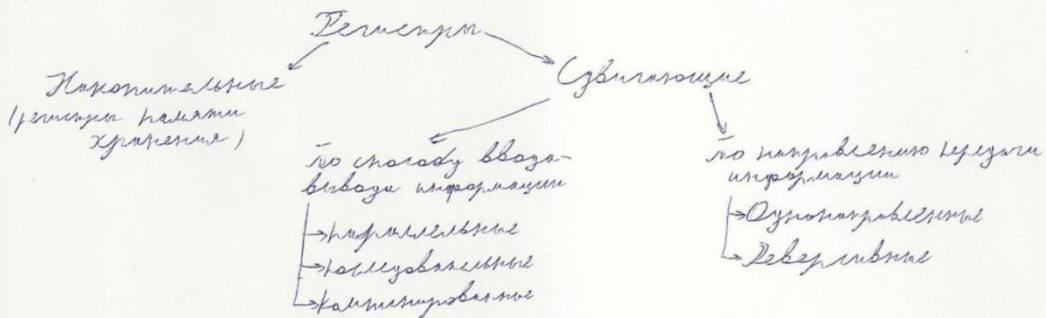 Регистры
Накопительные
(регистры памяти
хранения)
Сдвигающие
по способу ввода-
вывода информации
параллельные
последовательные
комбинированные
по направлению передачи
информации
Однонаправленные
Реверсивные